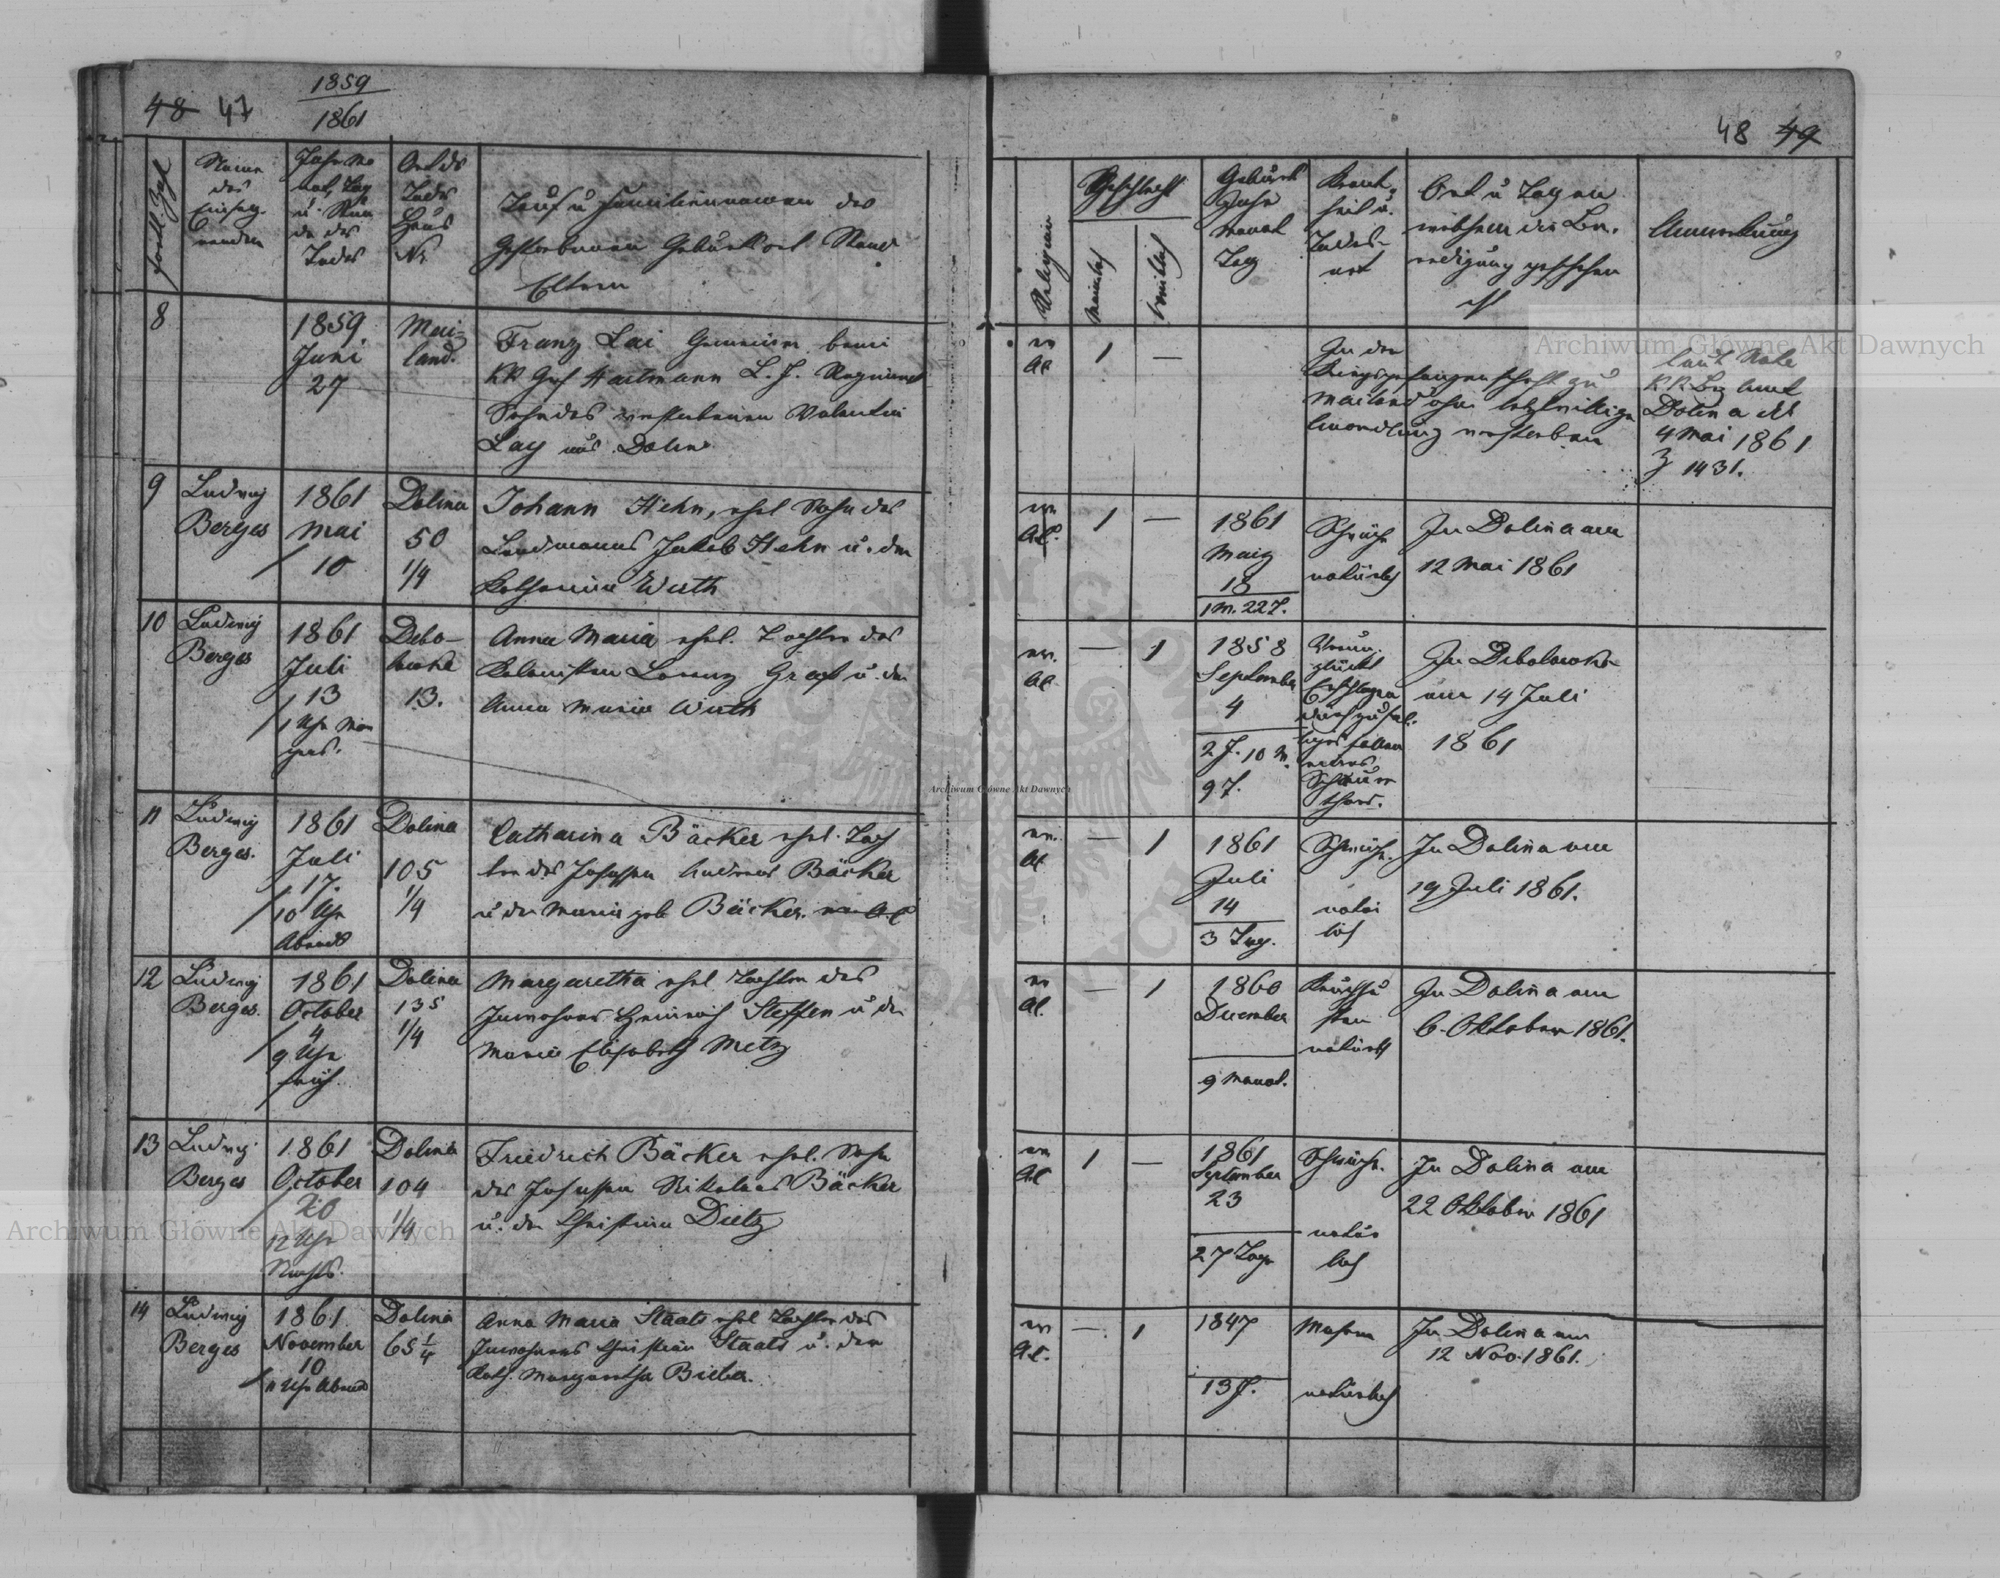 48 47
1859
1861
fortl. Zahl
Name
des
Einseg-
nenden
Jahr Mo
nat, Tag
u. Stun
de des
Todes
Ort des
Todes
Haus
Nr
Tauf u Familiennamen des
Gestorbenen Geburtsort Stand
Eltern
8
1859
Juni
27
Mai-
land.
Franz Lai Gemeiner beim
KK Graf Hartmann L. J. Regiment
Sohn des verstorbenen Valentin
Lay aus Dolina
9
Ludwig
Berges
1861
Mai
10
Dolina
50
1/4
Johann Hehn, ehel Sohn des
Landmanns Jakob Hehn u. der
Katharina Wirth
10
Ludwig
Berges
1861
Juli
13
1 Uhr Mor
gens.
Debo-
lowka
13.
Anna Maria ehel. Tochter des
Kolonisten Lorenz Graf u. der
Anna Maria Wirth
11
Ludwig
Berges.
1861
Juli
17.
10 Uhr
Abends
Dolina
105
1/4
Catharina Bäcker ehel. Toch
ter des Insassen Andreas Bäcker
u der Maria geb Bäcker. ev AC
12
Ludwig
Berges.
1861
October
4
9 Uhr
früh.
Dolina
135
1/4
Margaretha ehel Tochter des
Inwohners Heinrich Steffen u der
Maria Elisabeth Metz
13
Ludwig
Berges
1861
October
20
12 Uhr
Nachts.
Dolina
104
1/4
Friedrich Bäcker ehel. Sohn
des Insassen Nikolaus Bäcker
u. der Christina Dietz
14
Ludwig
Berges
1861.
November
10
11 Uhr Abends
Dolina
65 1/4
Anna Maria Staats ehel Tochter des
Inwohners Christian Staats u. der
Kath. Margaretha Bieber.
48 49
Religion
Geschlecht
männlich
weiblich
Geburts
Jahr
Monat
Tag
Krank-
heit u.
Todes-
art
Ort u Tag an
welchem die Be-
erdigung geschehen
ist
Anmerkung
ev
AC
1
—
In der
Kriegsgefangenschaft zu
Mailand ohne letztwillige
Anordnung verstorben
laut Note
KK Bez Amt
Dolina ddt
4 Mai 1861
Z 1431.
ev
AC.
1
—
1861
Maerz
18
1 M. 22 T.
Schwäche
natürlich
In Dolina am
12 Mai 1861
ev.
AC
—
1
1858
September
4
2 J. 10 M.
9 T.
Verun-
glückt
Erschlagen
durch zufäl-
liges fallen
eines
Scheuer
thors.
In Debolowka
am 14 Juli
1861
ev.
AC
—
1
1861
Juli
14
3 Tag.
Schwäche.
natür
lich
In Dolina am
19 Juli 1861.
ev
AC.
—
1
1860
December
9 Monat.
Keuchhu
sten
natürlich
In Dolina am
6. Oktober 1861.
ev
AC
1
—
1861
September
23
27 Tage
Schwäche.
natür
lich
In Dolina am
22 Oktober 1861
ev
AC.
—
1
1847
13 J.
Masern
natürlich
In Dolina am
12 Nov. 1861.
Archiwum Główne Akt Dawnych
Archiwum Główne Akt Dawnych
Archiwum Główne Akt Dawnych